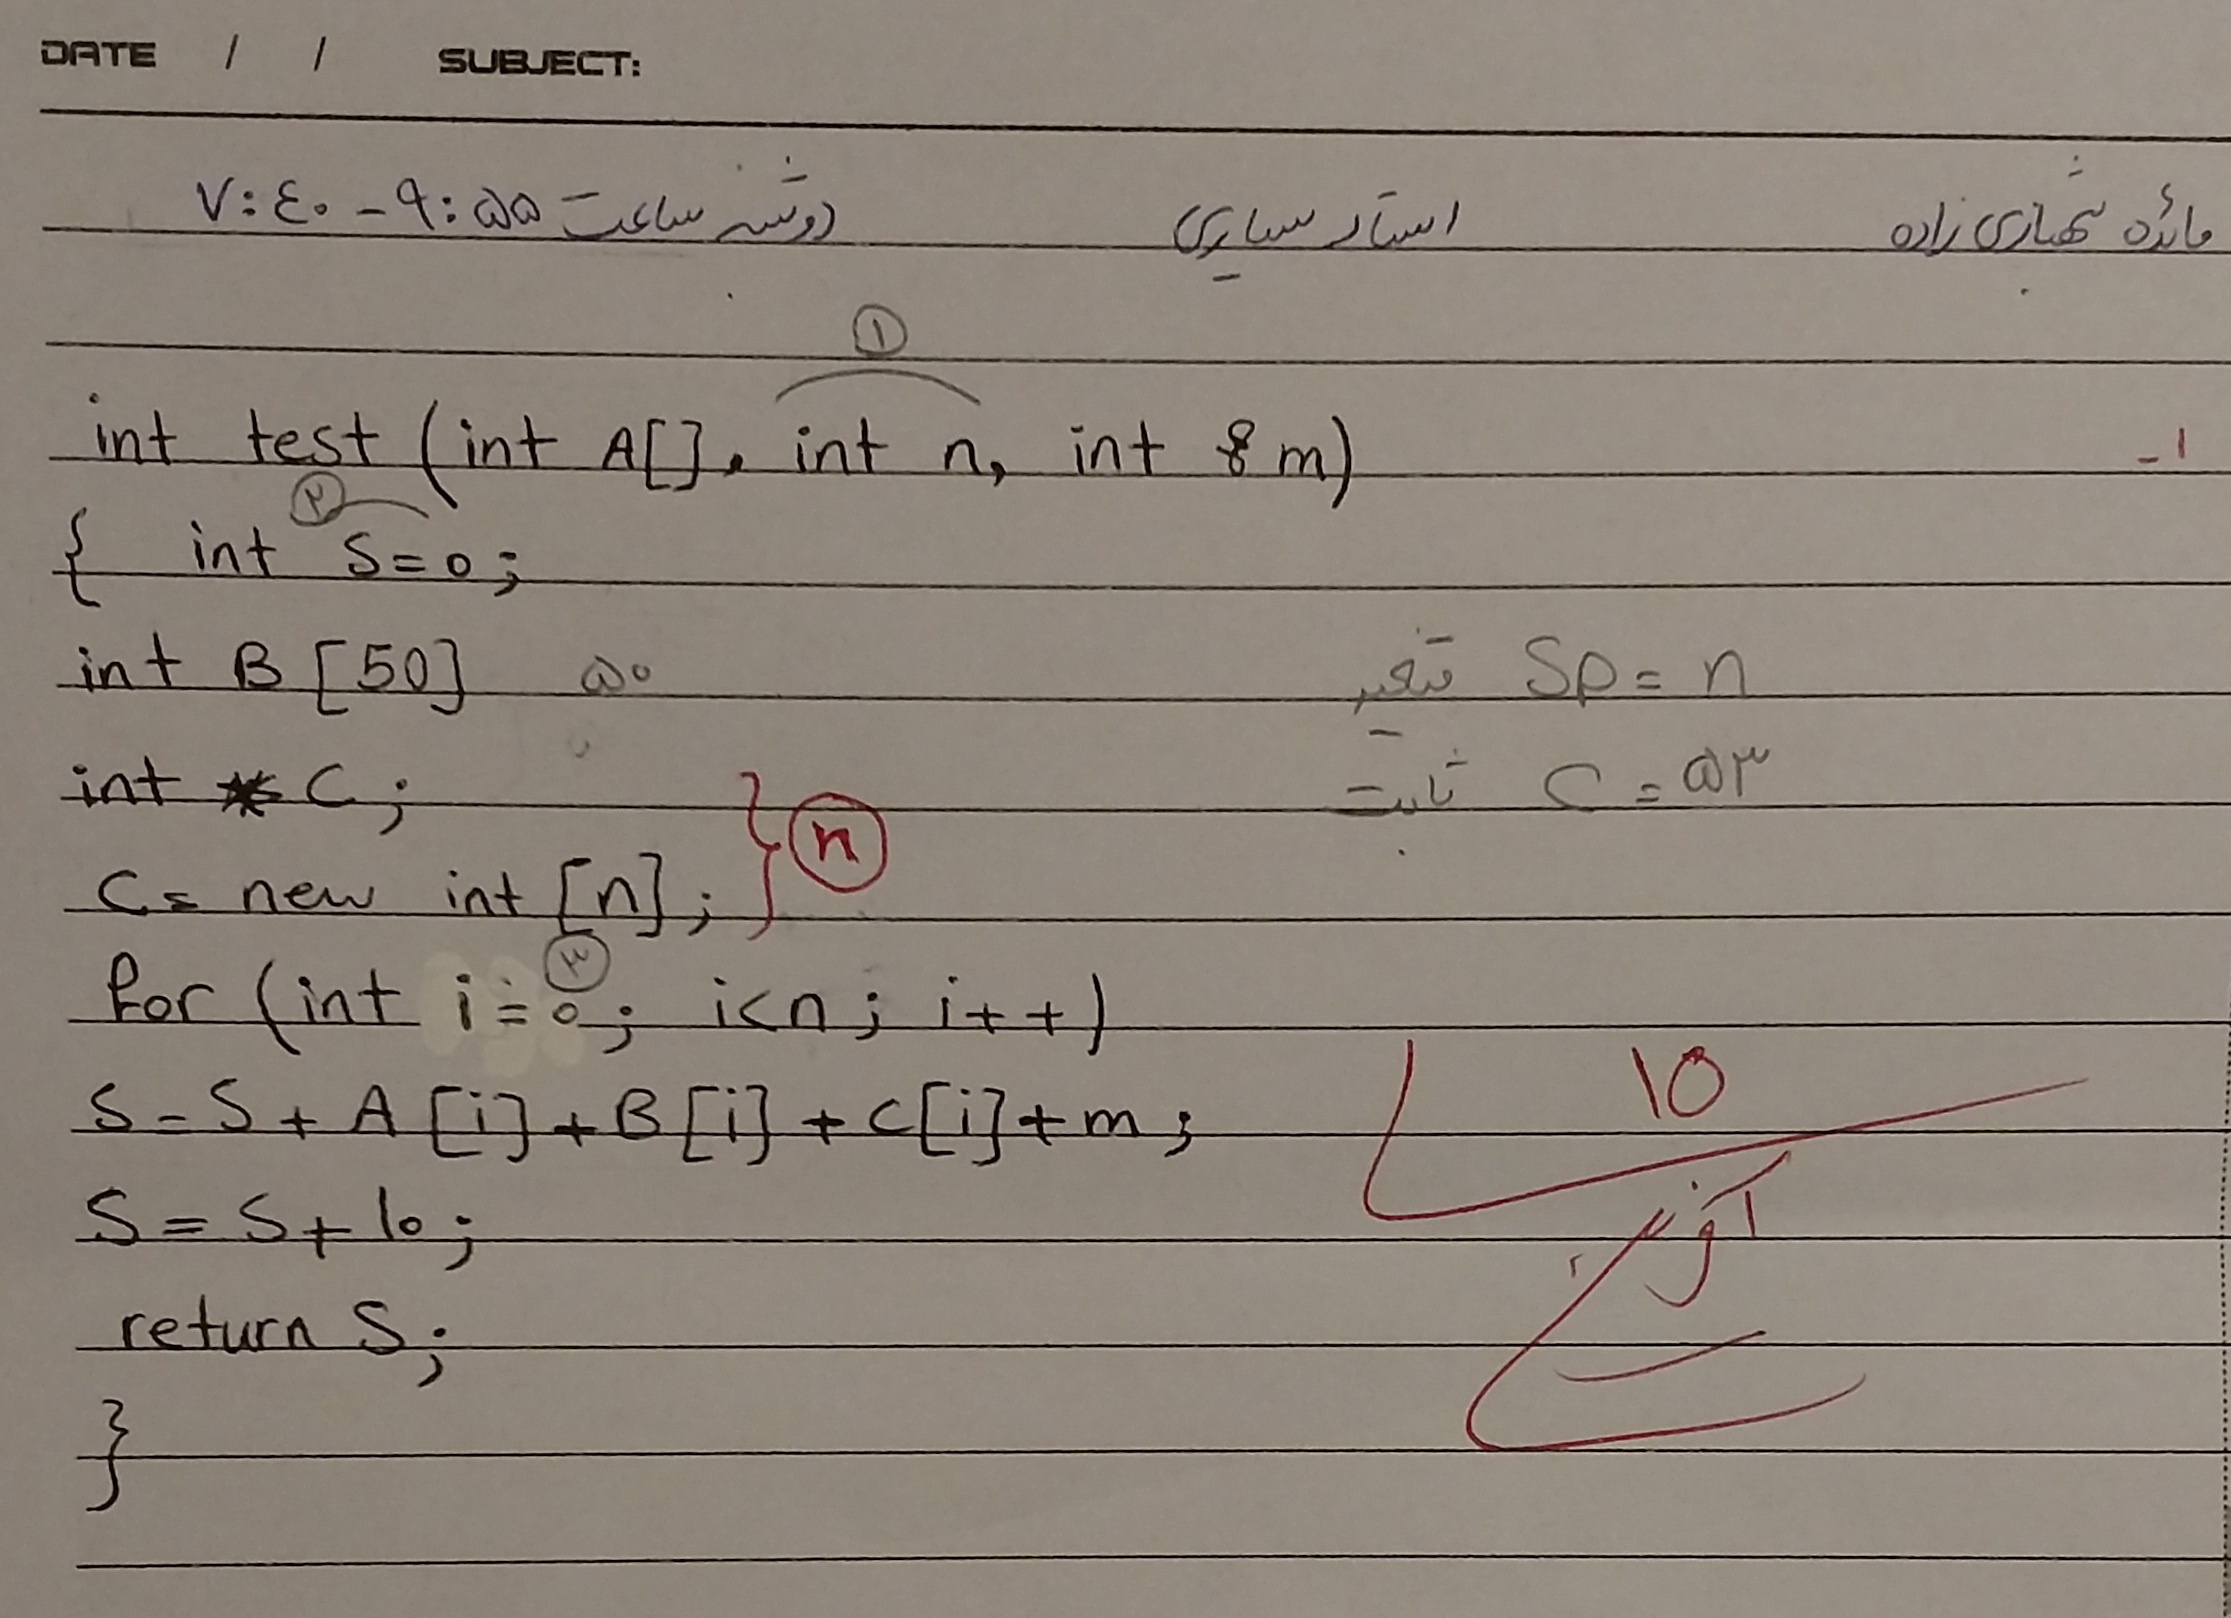 DATE / / SUBJECT:
مائده استاد سایری دوشنبه ساعت ۷:۴۰ - ۹:۵۵
۱
int test (int A[], int n, int & m)
-۱
۲
{ int S=0;
int B [50] ۵۰
متغیر Sp = n
int * C;
ثابت C = ۵۳
n
C = new int [n];
۳
for (int i = 0; i<n; i++)
S = S + A [i] + B [i] + C [i] + m;
۱۵
S = S + 10;
return S;
}